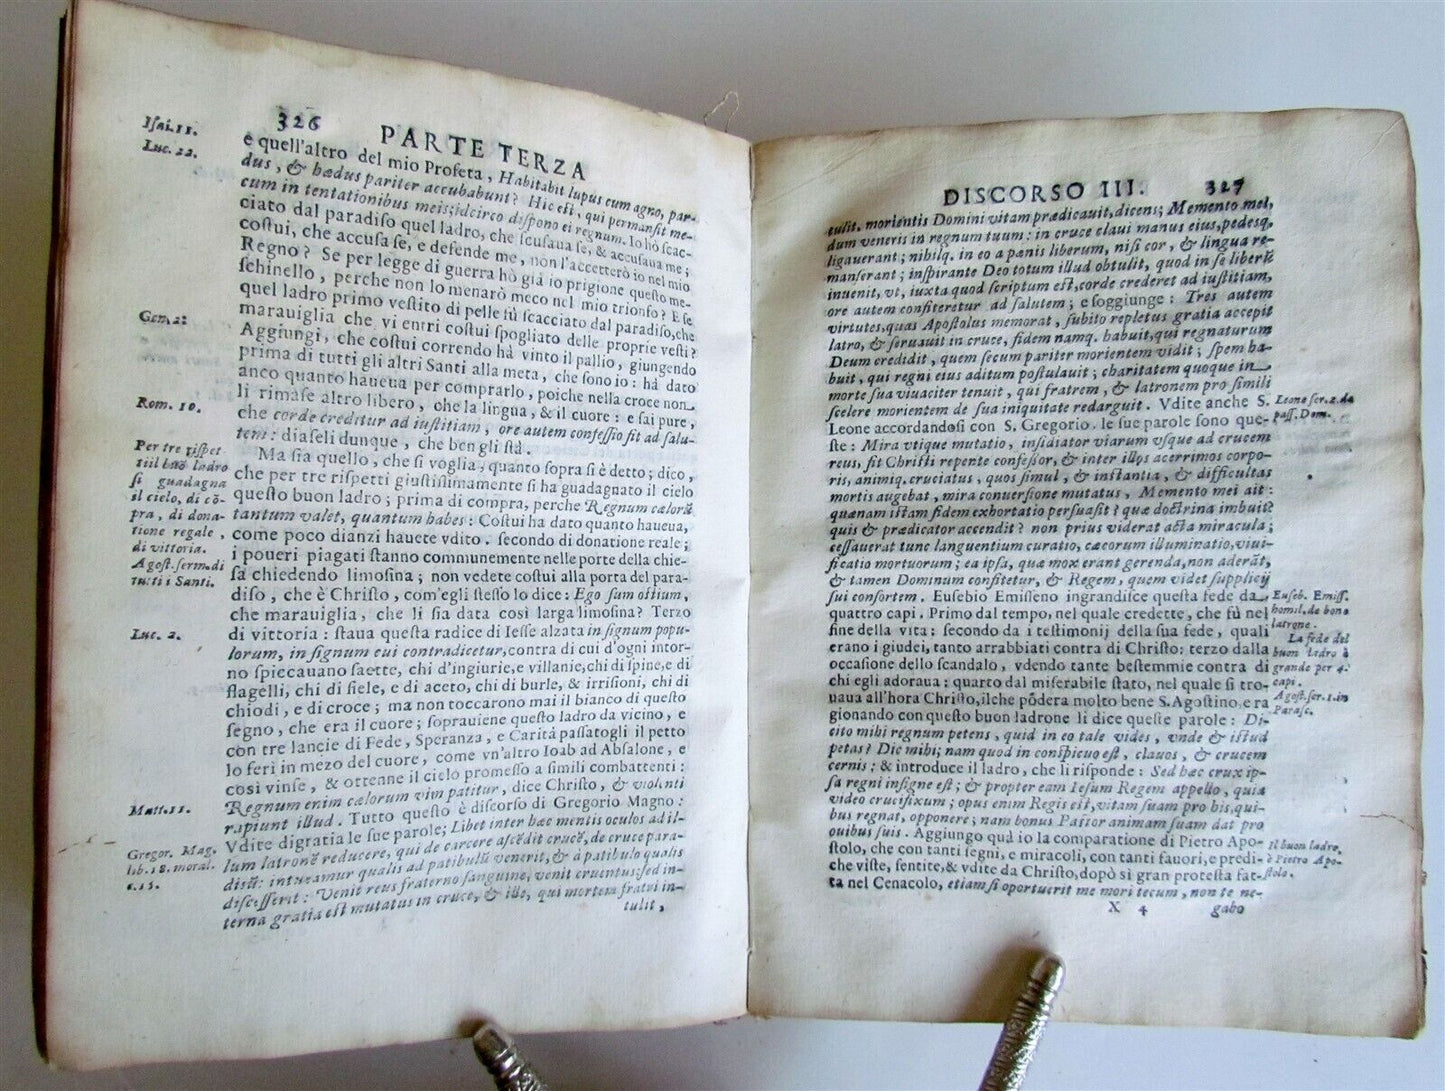 326
PARTE TERZA
Isai. 11.
Luc. 22.
e quell'altro del mio Profeta, Habitabit lupus cum agno, par-
dus, & hædus pariter accubabunt? Hic est, qui permansit me-
cum in tentationibus meis; idcirco dispono ei regnum. Io hò scac-
ciato dal paradiso quel ladro, che scusaua se, & accusaua me;
costui, che accusa se, e defende me, non l'accetterò io nel mio
Regno? Se per legge di guerra hò già io prigione questo me-
schinello, perche non lo menarò meco nel mio trionfo? E se
quel ladro primo vestito di pelle fù scacciato dal paradiso, che
Gen. 2:
marauiglia che vi entri costui spogliato delle proprie vesti?
Aggiungi, che costui correndo hà vinto il pallio, giungendo
prima di tutti gli altri Santi alla meta, che sono io: hà dato
anco quanto haueua per comprarlo, poiche nella croce non
li rimase altro libero, che la lingua, & il cuore: e sai pure,
Rom. 10.
che corde creditur ad iustitiam, ore autem confessio fit ad salu-
tem: diaseli dunque, che ben gli stà.
Per tre rispet
ti il buō ladro
si guadagna
il cielo, di cō-
pra, di dona-
tione regale,
di vittoria.
Agost. serm. di
tutti i Santi.
Ma sia quello, che si voglia, quanto sopra si è detto; dico,
che per tre rispetti giustissimamente si ha guadagnato il cielo
questo buon ladro; prima di compra, perche Regnum cælorū
tantum valet, quantum habes: Costui ha dato quanto haueua,
come poco dianzi hauete vdito. secondo di donatione reale;
i poueri piagati stanno communemente nelle porte della chie-
sa chiedendo limosina; non vedete costui alla porta del para-
diso, che è Christo, com'egli stesso lo dice: Ego sum ostium,
che marauiglia, che li sia data così larga limosina? Terzo
Luc. 2.
di vittoria: staua questa radice di Iesse alzata in signum popu-
lorum, in signum cui contradicetur, contra di cui d'ogni intor-
no spiccauano saette, chi d'ingiurie, e villanie, chi di spine, e di
flagelli, chi di fiele, e di aceto, chi di burle, & irrisioni, chi di
chiodi, e di croce; ma non toccarono mai il bianco di questo
segno, che era il cuore; soprauiene questo ladro da vicino, e
con tre lancie di Fede, Speranza, e Carità passatogli il petto
lo ferì in mezo del cuore, come vn'altro Ioab ad Absalone, e
così vinse, & ottenne il cielo promesso a simili combattenti:
Matt. 11.
Regnum enim cælorum vim patitur, dice Christo, & violenti
rapiunt illud. Tutto questo è discorso di Gregorio Magno:
Gregor. Mag.
lib. 18. moral.
c. 15.
Vdite digratia le sue parole; Libet inter hæc mentis oculos ad il-
lum latronē reducere, qui de carcere ascēdit crucē, de cruce para-
disū: intueamur qualis ad patibulū venerit, & à patibulo qualis
discesserit: Venit reus fraterno sanguine, venit cruentus; sed in-
terna gratia est mutatus in cruce, & ille, qui mortem fratri in-
tulit,
DISCORSO III. 327
tulit, morientis Domini vitam prædicauit, dicens; Memento mei,
dum veneris in regnum tuum: in cruce claui manus eius, pedesq,
ligauerant; nihilq. in eo a pœnis liberum, nisi cor, & lingua re-
manserant; inspirante Deo totum illud obtulit, quod in se liberū
inuenit, vt, iuxta quod scriptum est, corde crederet ad iustitiam,
ore autem confiteretur ad salutem; e soggiunge: Tres autem
virtutes, quas Apostolus memorat, subito repletus gratia accepit
latro, & seruauit in cruce, fidem namq. habuit, qui regnaturum
Deum credidit, quem secum pariter morientem vidit; spem ha-
buit, qui regni eius aditum postulauit; charitatem quoque in
morte sua viuaciter tenuit, qui fratrem, & latronem pro simili
scelere morientem de sua iniquitate redarguit. Vdite anche S.
Leone ser. 2. de
pass. Dom.
Leone accordandosi con S. Gregorio. le sue parole sono que-
ste: Mira vtique mutatio, insidiator viarum vsque ad crucem
reus, fit Christi repente confessor, & inter illos acerrimos corpo-
ris, animiq. cruciatus, quos simul, & instantia, & difficultas
mortis augebat, mira conuersione mutatus, Memento mei ait:
quænam istam fidem exhortatio persuasit? quæ doctrina imbuit?
quis & prædicator accendit? non prius viderat acta miracula;
cessauerat tunc languentium curatio, cæcorum illuminatio, viui-
ficatio mortuorum; ea ipsa, quæ mox erant gerenda, non aderāt,
& tamen Dominum confitetur, & Regem, quem videt supplicij
sui consortem. Eusebio Emisseno ingrandisce questa fede da
Euseb. Emiss.
homil. de bono
latrone.
quattro capi. Primo dal tempo, nel quale credette, che fù nel
fine della vita; secondo da i testimonij della sua fede, quali
La fede del
buon ladro è
grande per 4.
capi.
erano i giudei, tanto arrabbiati contra di Christo: terzo dalla
occasione dello scandalo, vdendo tante bestemmie contra di
chi egli adoraua: quarto dal miserabile stato, nel quale si tro-
Agost. ser. 1. in
Parasc.
uaua all'hora Christo, ilche pōdera molto bene S. Agostino, e ra
gionando con questo buon ladrone li dice queste parole: Di-
cito mihi regnum petens, quid in eo tale vides, vnde & istud
petas? Dic mihi; nam quod in conspicuo est, clauos, & crucem
cernis; & introduce il ladro, che li risponde: Sed hæc crux ip-
sa regni insigne est; & propterea Iesum Regem appello, quia
video crucifixum; opus enim Regis est, vitam suam pro his, qui-
bus regnat, opponere; nam bonus Pastor animam suam dat pro
ouibus suis. Aggiungo quà io la comparatione di Pietro Apo-
Il buon ladro,
è Pietro Apo-
stolo.
stolo, che con tanti segni, e miracoli, con tanti fauori, e predi-
che viste, sentite, & vdite da Christo, dopò sì gran protesta fat-
ta nel Cenacolo, etiamsi oportuerit me mori tecum, non te ne-
X 4
gabo